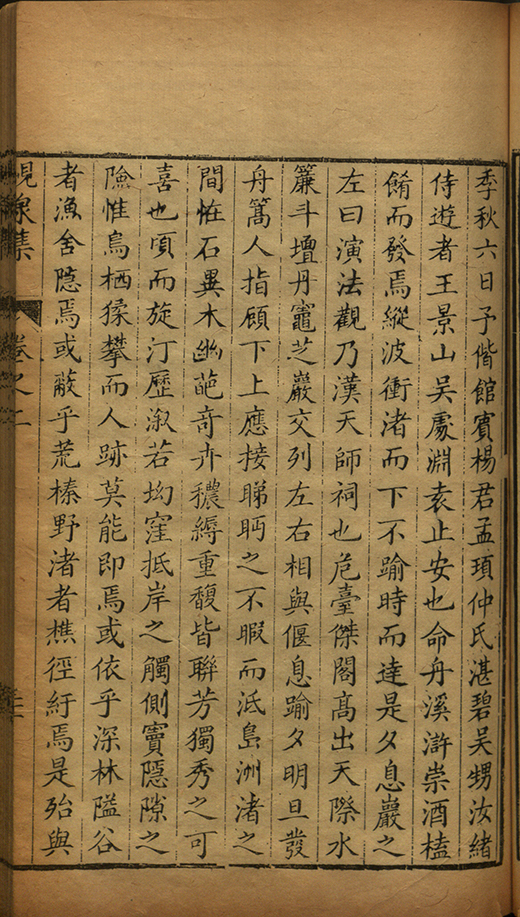 季秋六日予偕館賓楊君孟頊仲氏湛碧吴甥汝緒
侍遊者王景山吴處淵袁止安也命舟溪滸崇酒榼
餚而發焉縱波衝渚而下不踰時而達是夕息巖之
左曰演法觀乃漢天師祠也危臺傑閣髙出天際水
簾斗壇丹竈芝巖交列左右相與偃息踰夕明旦發
舟篙人指顧下上應接睇眄之不暇而泜島洲渚之
間恠石異木幽葩竒卉穠縟重馥皆聮芳獨秀之可
喜也頃而旋汀歷溆若坳窪抵岸之觸側竇隱隙之
險惟鳥栖猱攀而人跡莫能即焉或依乎深林隘谷
者漁舍隠焉或蔽乎荒榛野渚者樵徑紆焉是殆與
峴泉集
卷之二